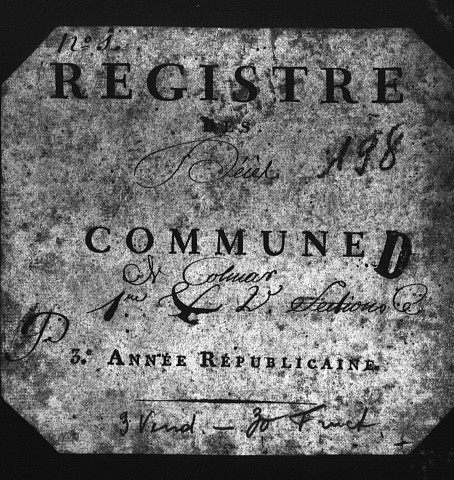 n.º 1.
REGISTRE
DES
Décet 198
COMMUNE D
Colmar
1re & 2e Sections
3.e ANNÉE RÉPUBLICAINE.
3 Vend. — 30 Fruct.